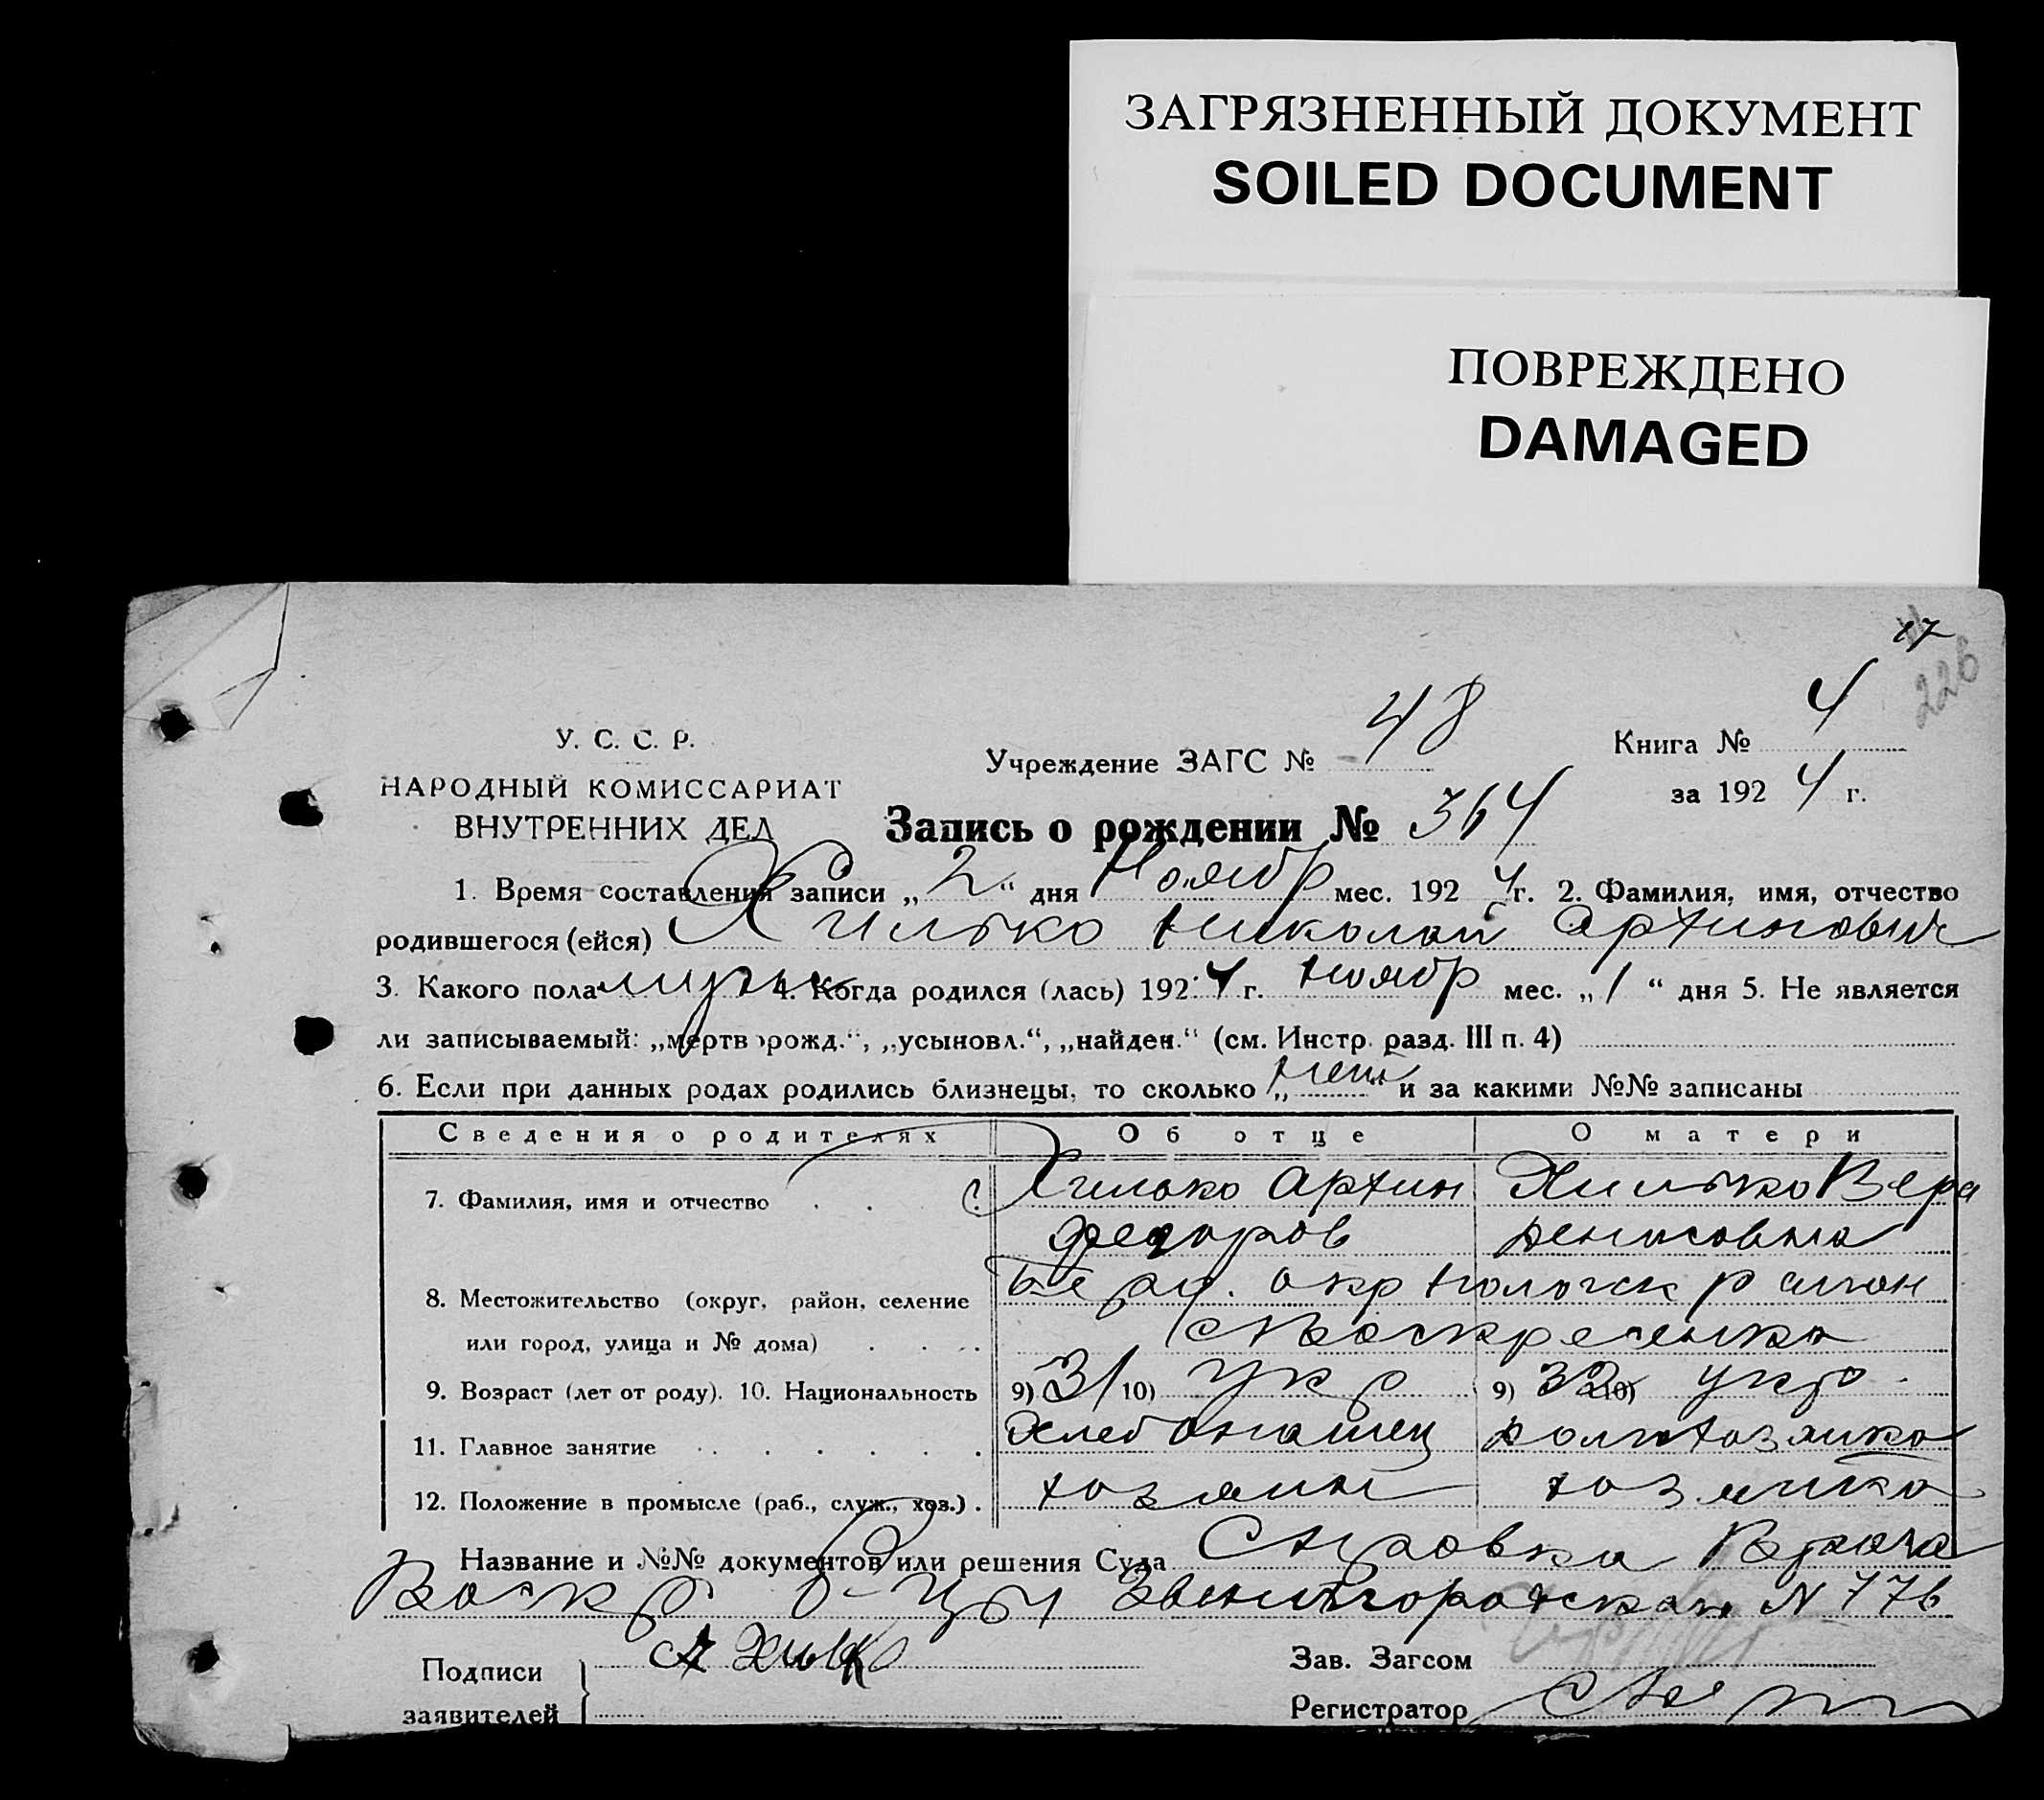 ЗАГРЯЗНЕННЫЙ ДОКУМЕНТ
SOILED DOCUMENT
ПОВРЕЖДЕНО
DAMAGED
17
226
У. С. С. Р.
НАРОДНЫЙ КОМИССАРИАТ
ВНУТРЕННИХ ДЕЛ
Учреждение ЗАГС № 48
Книга № 4
за 1924 г.
Запись о рождении № 364
1. Время составления записи „2“ дня Ноябр мес. 1924 г. 2. Фамилия, имя, отчество
родившегося (ейся) Хилько Николай Архинович
3. Какого пола муж 4. Когда родился (лась) 1924 г. ноябр мес. „1“ дня 5. Не является
ли записываемый: „мертворожд.“, „усыновл.“, „найден.“ (см. Инстр. разд. III п. 4)
6. Если при данных родах родились близнецы, то сколько „нет“ и за какими №№ записаны
Сведения о родителях Об отце О матери
7. Фамилия, имя и отчество . . . Хилько Архин Хилько Вера
Федоров Денисовна
8. Местожительство (округ, район, селение окр район
или город, улица и № дома) . . . . с Воскресенка
9. Возраст (лет от роду). 10. Национальность 9) 31 10) Укр 9) 32 10) укр.
11. Главное занятие . . . . . . . Хлебопашец домохозяика
12. Положение в промысле (раб., служ., хоз.) . хозяин хозяика
Название и №№ документов или решения Суда Справка Врача
Воскр б-цы Звенигородская N 776
Подписи
заявителей
А Хилько
Зав. Загсом
Регистратор